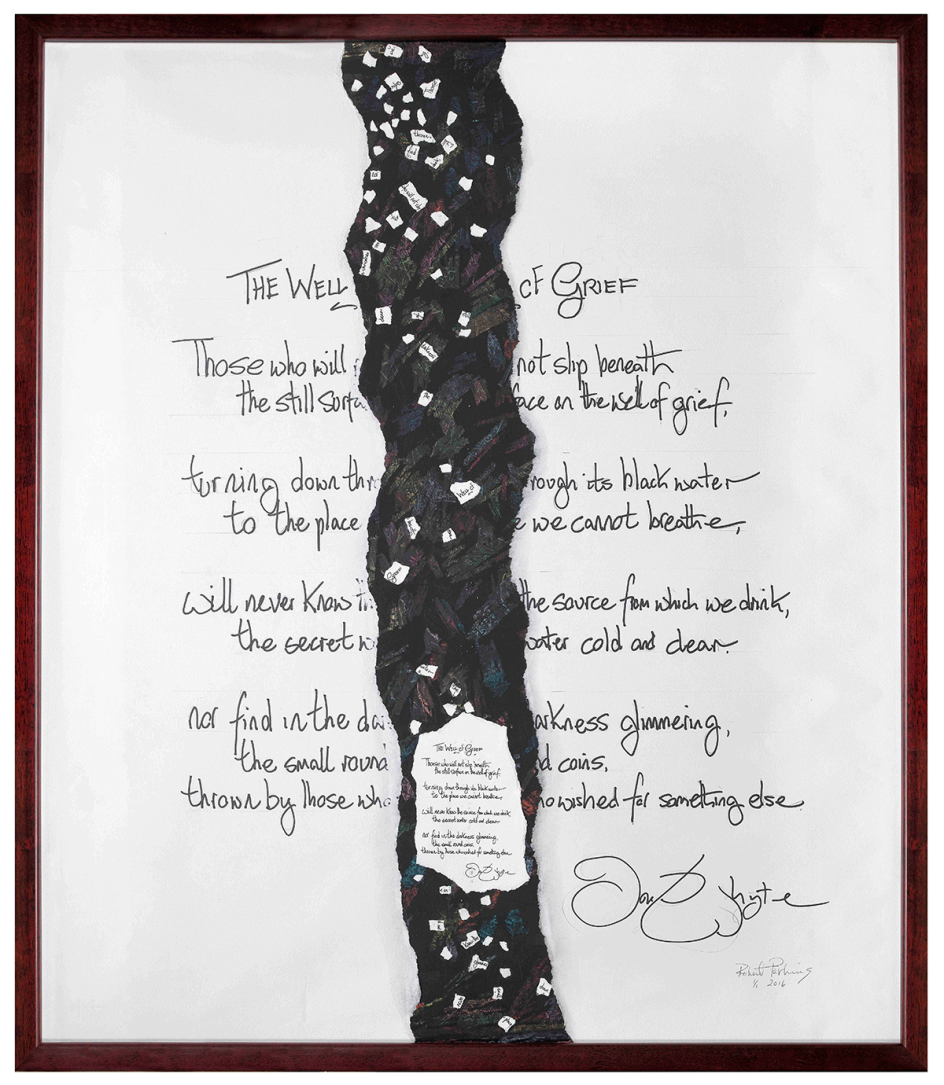 THE WELL OF GRIEF
Those who will not slip beneath
the still surfa face on the well of grief,
turning down thr rough its black water
to the place e we cannot breathe,
will never know th the source from which we drink,
the secret w water cold and clear.
nor find in the da arkness glimmering,
the small round d coins,
thrown by those who ho wished for something else
David Whyte
1/1 2016
Well of
Grief
THE WELL of GRIEF
Those who will not slip beneath
the still surface on the well of grief,
turning down through its black water
to the place we cannot breathe,
will never know the source from which we drink,
the secret water cold and clear
nor find in the darkness glimmering,
the small round coins
thrown by those who wished for something else
David Whyte